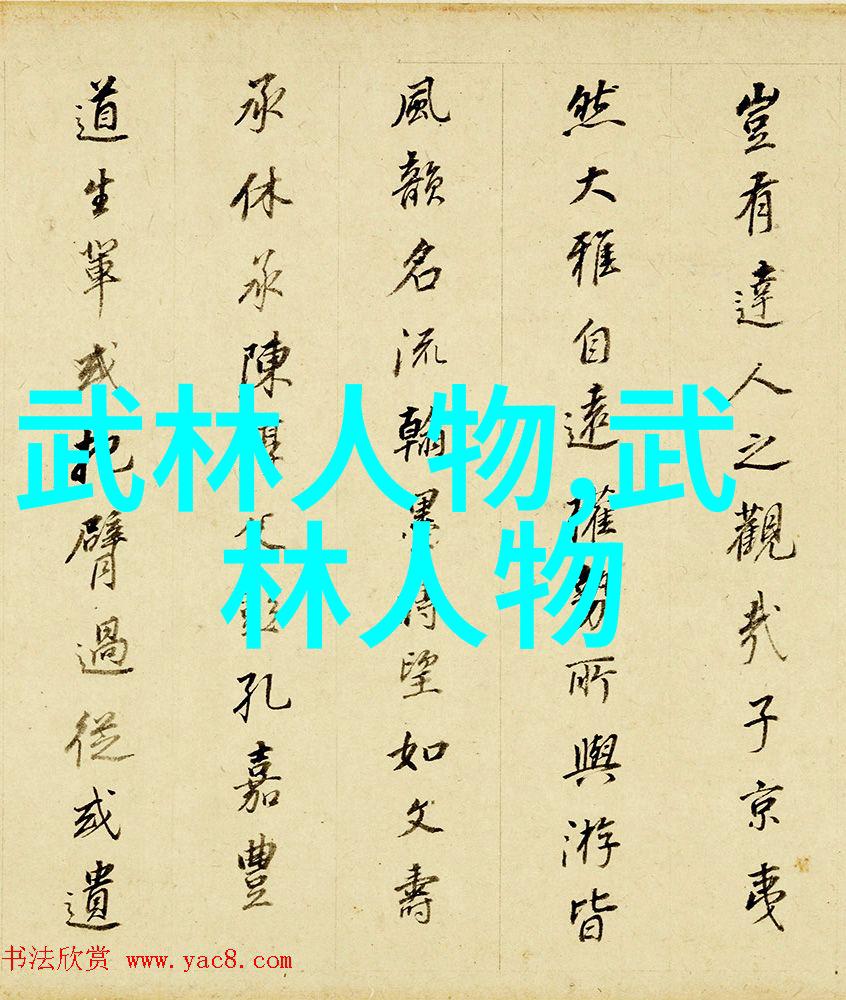 豈有達人之觀哉子京夷
然大雅自遠權勢所與游皆
風韻名流翰墨時望如文壽
承休承陳孔嘉豐
道生輩或把臂過從或遺
武林人物,武
林人物
书法欣赏 www.yac8.com